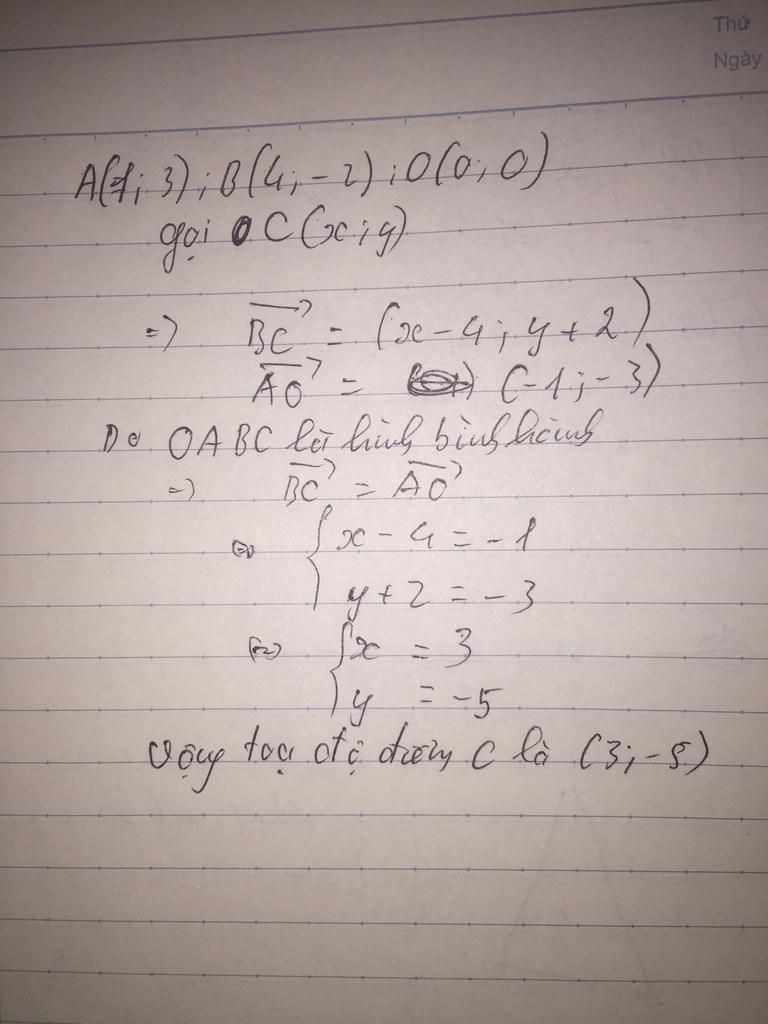 Thứ
Ngày
A(1; 3); B(4; -2); O(0; 0)
gọi C(x; y)
=> BC→ = (x-4; y+2)
AO→ = (-1; -3)
Do OABC là hình bình hành
=> BC→ = AO→
<=> { x - 4 = -1
y + 2 = -3
<=> { x = 3
y = -5
Vậy toạ độ điểm C là (3; -5)